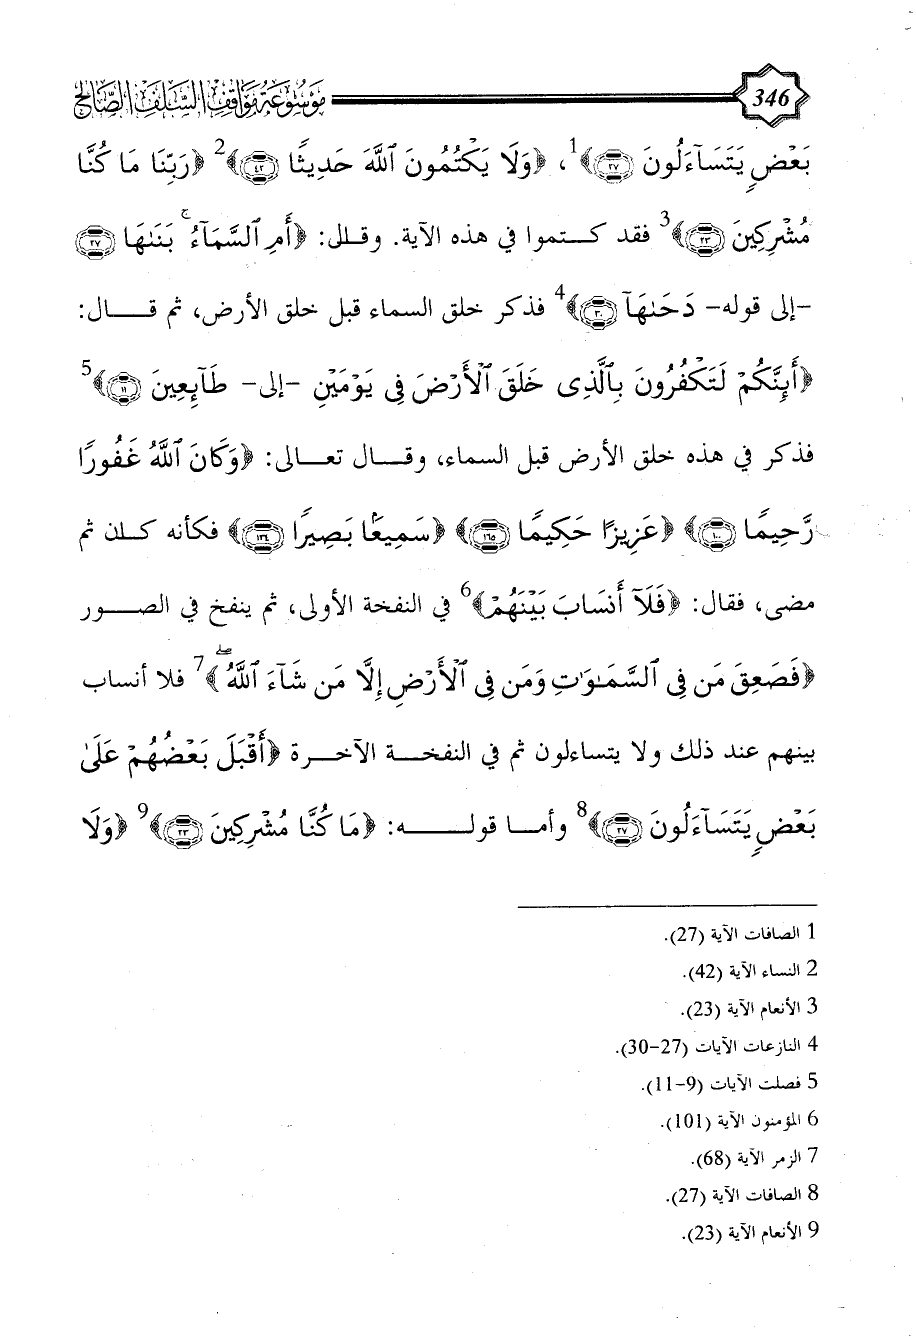 346 موسوعة مواقف السلف الصالح
بَعْضٍ يَتَسَآءَلُونَ ﴿٢٧﴾﴾1، ﴿وَلَا يَكْتُمُونَ ٱللَّهَ حَدِيثًا ﴿٤٢﴾﴾2 ﴿رَبِّنَا مَا كُنَّا
مُشْرِكِينَ ﴿٢٣﴾﴾3 فقد كتموا في هذه الآية. وقال: ﴿أَمِ ٱلسَّمَآءُ ۚ بَنَىٰهَا ﴿٢٧﴾
-إلى قوله- دَحَىٰهَآ ﴿٣٠﴾﴾4 فذكر خلق السماء قبل خلق الأرض، ثم قال:
﴿أَئِنَّكُمْ لَتَكْفُرُونَ بِٱلَّذِى خَلَقَ ٱلْأَرْضَ فِى يَوْمَيْنِ -إلى- طَآئِعِينَ ﴿١١﴾﴾5
فذكر في هذه خلق الأرض قبل السماء، وقال تعالى: ﴿وَكَانَ ٱللَّهُ غَفُورًا
رَّحِيمًا ﴿١٠٠﴾﴾ ﴿عَزِيزًا حَكِيمًا ﴿١٦٥﴾﴾ ﴿سَمِيعًۢا بَصِيرًا ﴿١٣٤﴾﴾ فكأنه كان ثم
مضى، فقال: ﴿فَلَآ أَنسَابَ بَيْنَهُمْ﴾6 في النفخة الأولى، ثم ينفخ في الصور
﴿فَصَعِقَ مَن فِى ٱلسَّمَـٰوَٰتِ وَمَن فِى ٱلْأَرْضِ إِلَّا مَن شَآءَ ٱللَّهُ ۖ﴾7 فلا أنساب
بينهم عند ذلك ولا يتساءلون ثم في النفخة الآخرة ﴿أَقْبَلَ بَعْضُهُمْ عَلَىٰ
بَعْضٍ يَتَسَآءَلُونَ ﴿٢٧﴾﴾8 وأما قوله: ﴿مَا كُنَّا مُشْرِكِينَ ﴿٢٣﴾﴾9 ﴿وَلَا
1 الصافات الآية (27).
2 النساء الآية (42).
3 الأنعام الآية (23).
4 النازعات الآيات (27-30).
5 فصلت الآيات (9-11).
6 المؤمنون الآية (101).
7 الزمر الآية (68).
8 الصافات الآية (27).
9 الأنعام الآية (23).